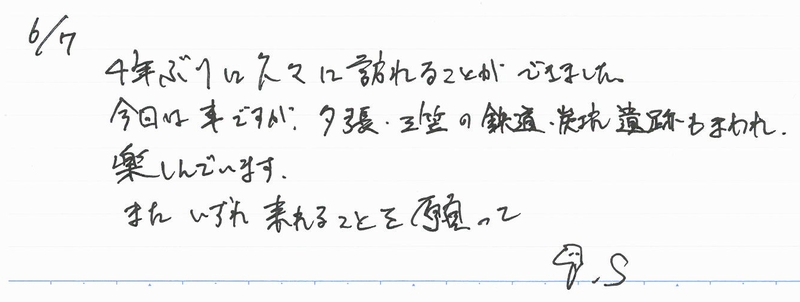 6/7
4年ぶりに久々に訪れることができました。
今日は車ですが、夕張・三笠の鉄道・炭坑遺跡もまわれ、
楽しんでいます。
また いずれ 来れることを願って
.S